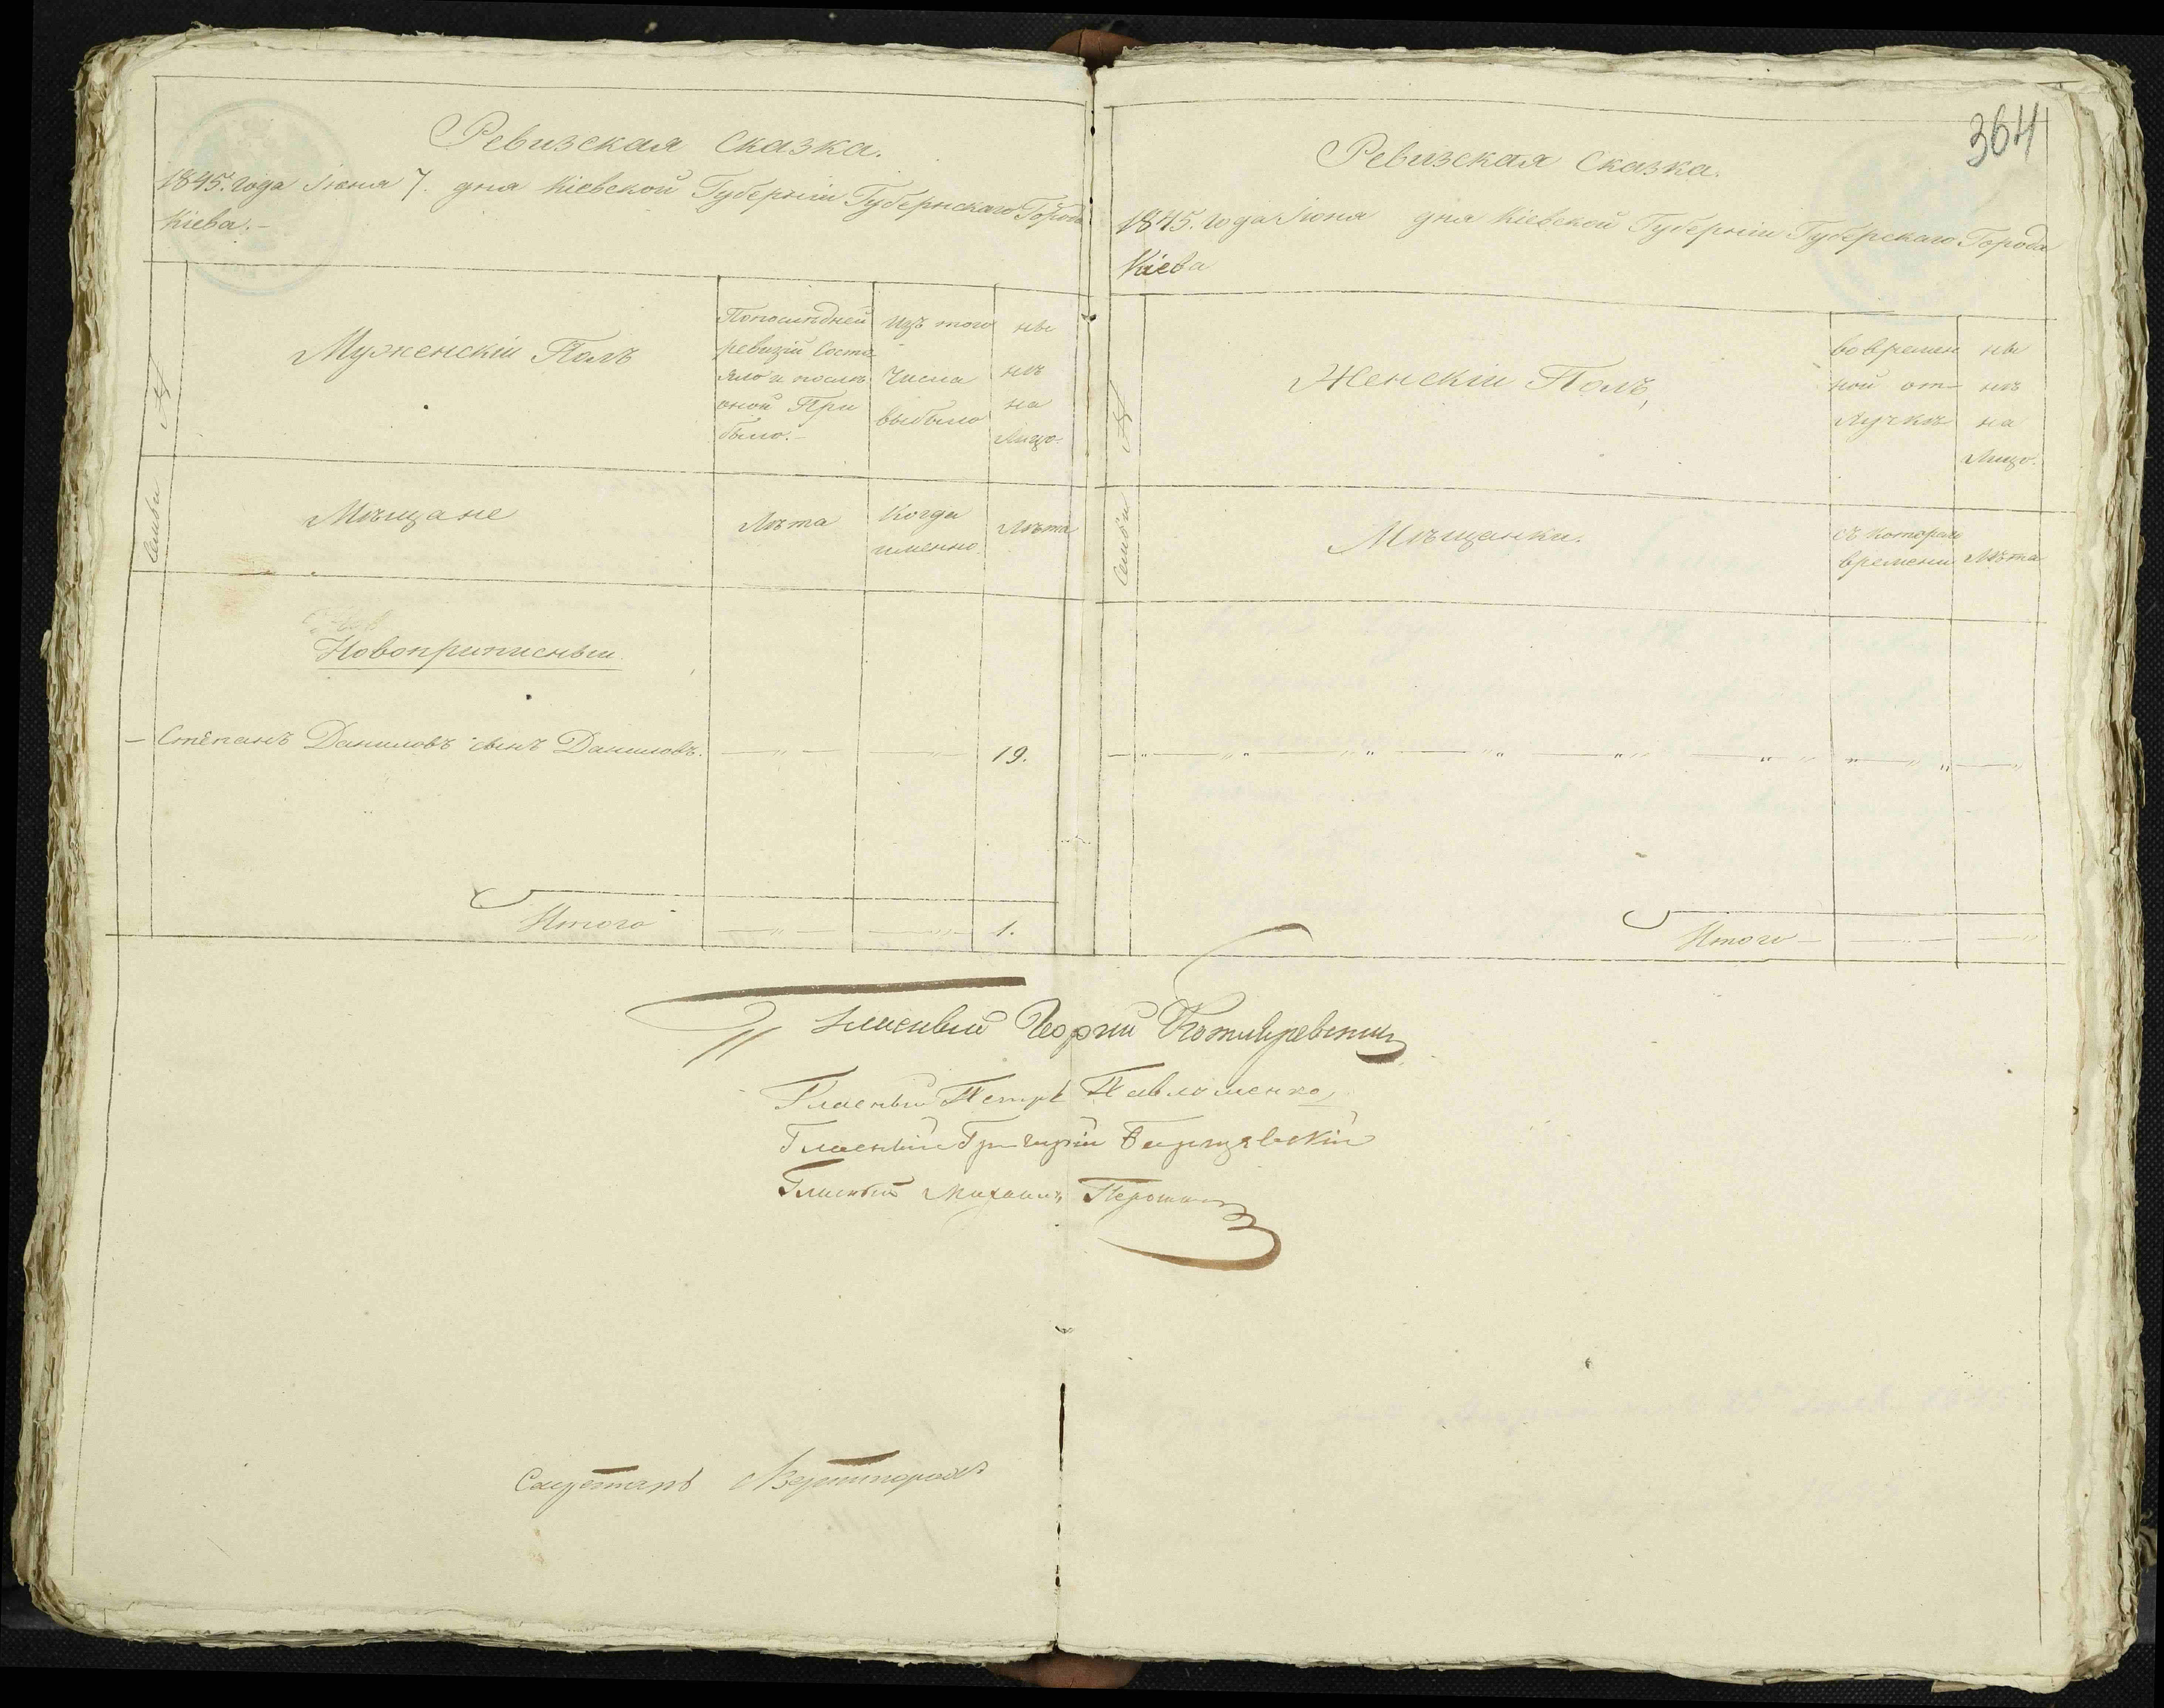 Ревизская Сказка.
1845. года Іюня 7. дня Кіевской Губерніи Губернскаго Города
Кіева.-
№ Семьи
Мужескій Полъ
Попослѣдней
ревизіи Состо
яло и послѣ
оной При
было.-
Изъ того
числа
выбыло
ны
нѣ
на
Лицо.
Мѣщане
Лѣта
Когда
именно.
Лѣта
Новоприписный
— Степанъ Даниловъ сынъ Даниловъ. 19.
Итого 1.
364
Ревизская Сказка.
1845. года Іюня дня Кіевской Губерніи Губернскаго Города
Кіева
№ Семьи
Женскій Полъ,
Во времен
ной от-
лучкѣ
ны
нѣ
на
Лицо.
Мѣщанки.
съ Котораго
времени
Лѣта
Итого
Гласный Георгій Котляревскій
Гласный Петръ Павлименко
Гласный Григорій
Гласный Михаилъ
Секретарь